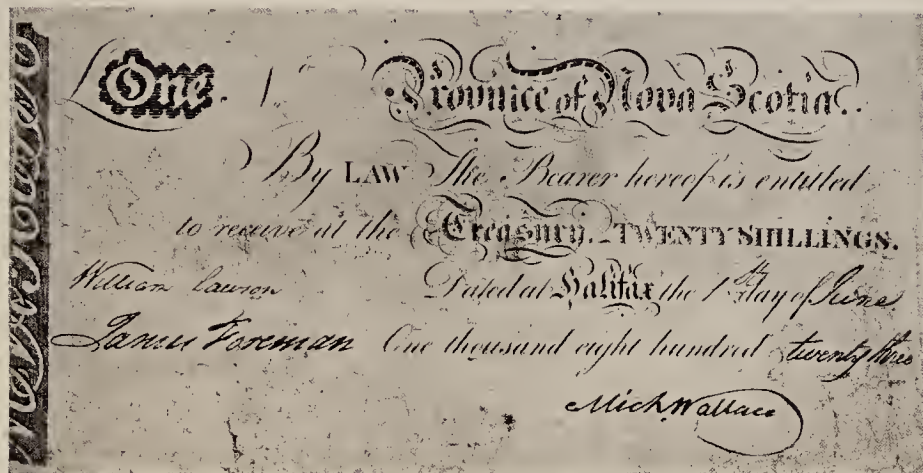 One. 1 Province of Nova Scotia.
By LAW The Bearer hereof is entitled
to receive at the Treasury. TWENTY SHILLINGS.
William Lawson Dated at Halifax the 1st day of June
James Foreman One thousand eight hundred twenty three
Mich Wallace